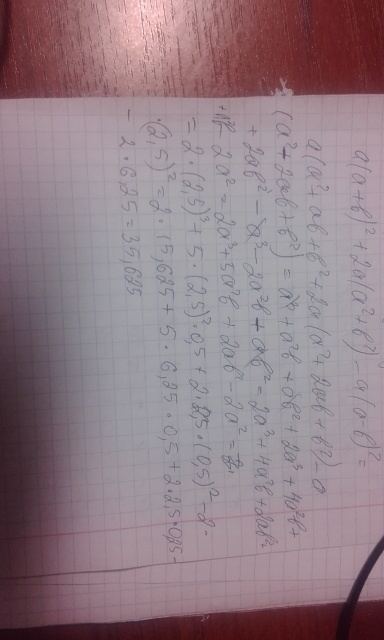 a(a+b)²+2a(a²+b²)-a(a-b)²=
a(a²+ab+b²+2a(a²+2ab+b²)-a
(a²+2ab+b²)=a³+a²b+ab²+2a³+4a²b+
+2ab²-a³-2a²b+ab²=2a³+4a²b+2ab²
-2a²=2a³+5a²b+2ab-2a²=
=2·(2,5)³+5·(2,5)²·0,5+2·2,5·(0,5)²-2·
·(2,5)²=2·15,625+5·6,25·0,5+2·2,5·0,25-
-2·6,25=35,625